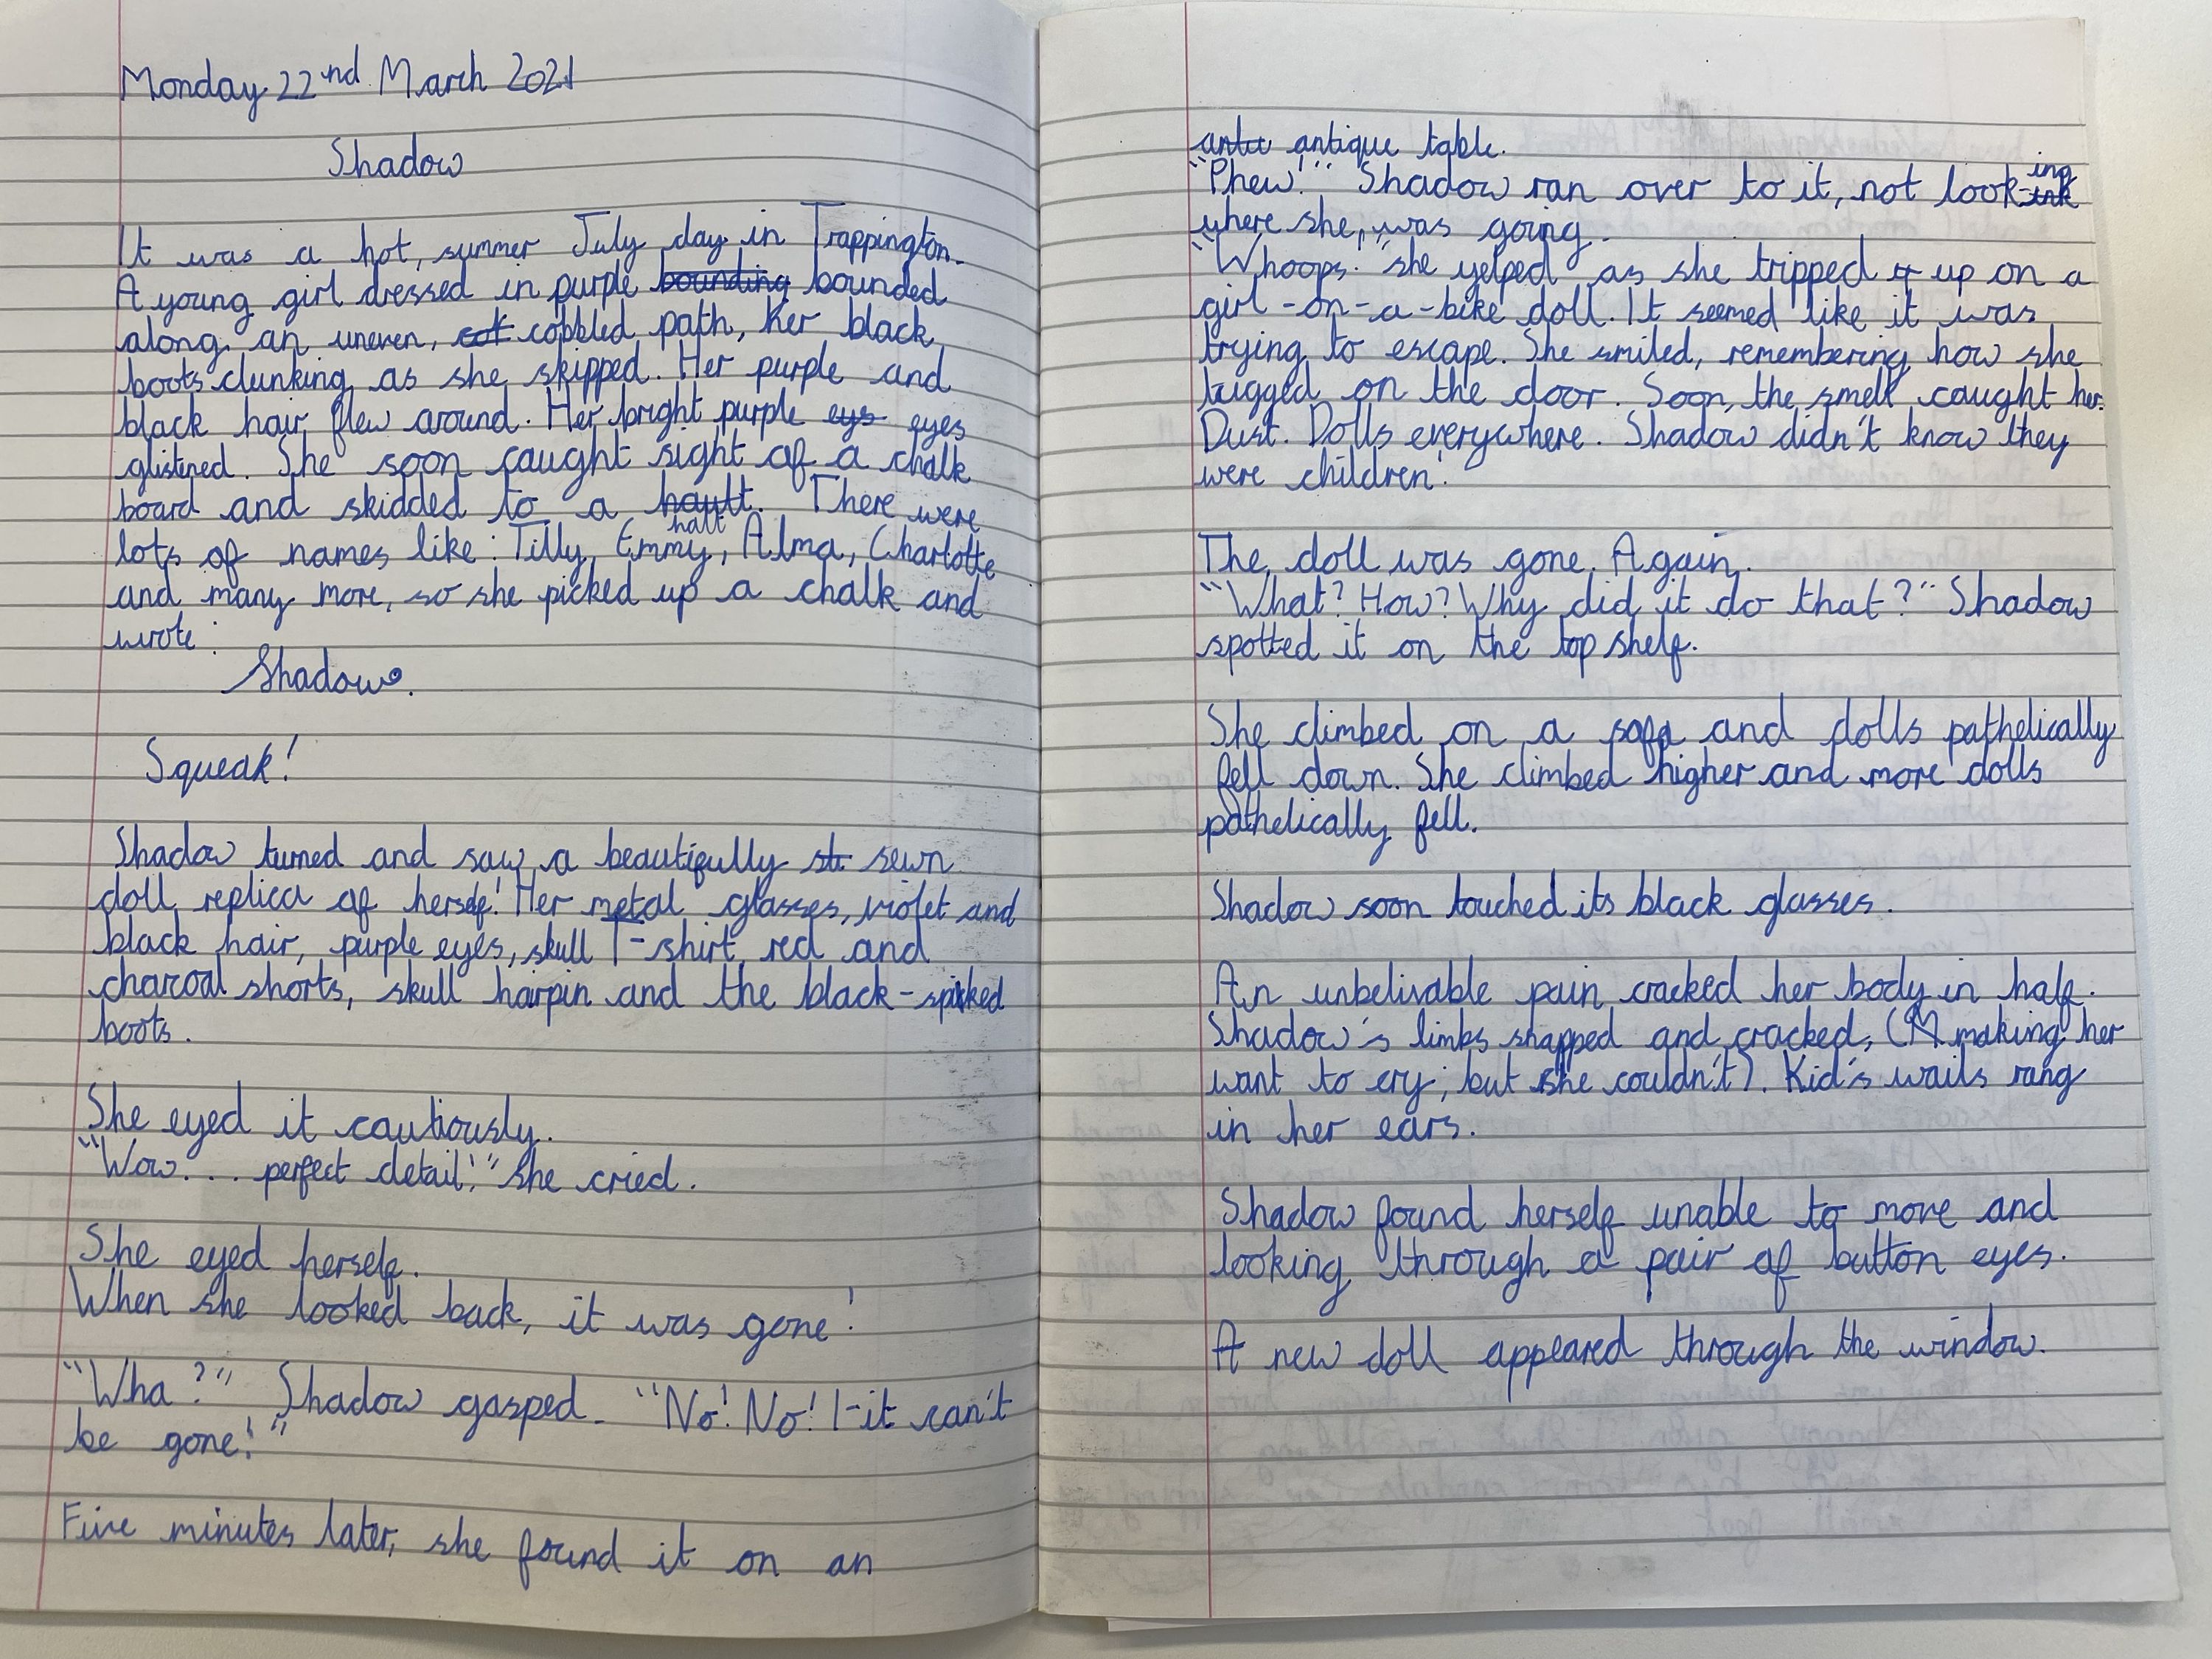 Monday 22nd March 2021
Shadow
It was a hot, summer July day in Trappington.
A young girl dressed in purple bounding bounded
along an uneven, cob cobbled path, her black
boots clunking as she skipped. Her purple and
black hair flew around. Her bright purple eys eyes
glistined. She soon caught sight of a chalk
board and skidded to a hautt halt. There were
lots of names like: Tilly, Emmy, Alma, Charlotte
and many more, so she picked up a chalk and
wrote:
Shadow.
Squeak!
Shadow turned and saw a beautifully se sewn
doll replica of herself! Her metal glasses, violet and
black hair, purple eyes, skull T-shirt, red and
charcoal shorts, skull hairpin and the black-spiked
boots.
She eyed it cautiously.
"Wow... perfect detail!" she cried.
She eyed herself.
When she looked back, it was gone!
"Wha?" Shadow gasped. "No! No! I-it can't
be gone!"
Five minutes later, she found it on an
antu antique table.
"Phew!" Shadow ran over to it, not look-ink ing
where she was going.
"Whoops." she yelped as she tripped up on a
girl-on-a-bike doll. It seemed like it was
trying to escape. She smiled, remembering how she
tugged on the door. Soon, the smell caught her.
Dust. Dolls everywhere. Shadow didn't know they
were children!
The doll was gone. Again.
"What? How? Why did it do that?" Shadow
spotted it on the top shelf.
She climbed on a sofa and dolls pathelically
fell down. She climbed higher and more dolls
pathelically fell.
Shadow soon touched its black glasses.
An unbelivable pain cracked her body in half.
Shadow's limbs snapped and cracked, (M making her
want to cry; but she couldn't). Kid's wails rang
in her ears.
Shadow found herself unable to move and
looking through a pair of button eyes.
A new doll appeared through the window.